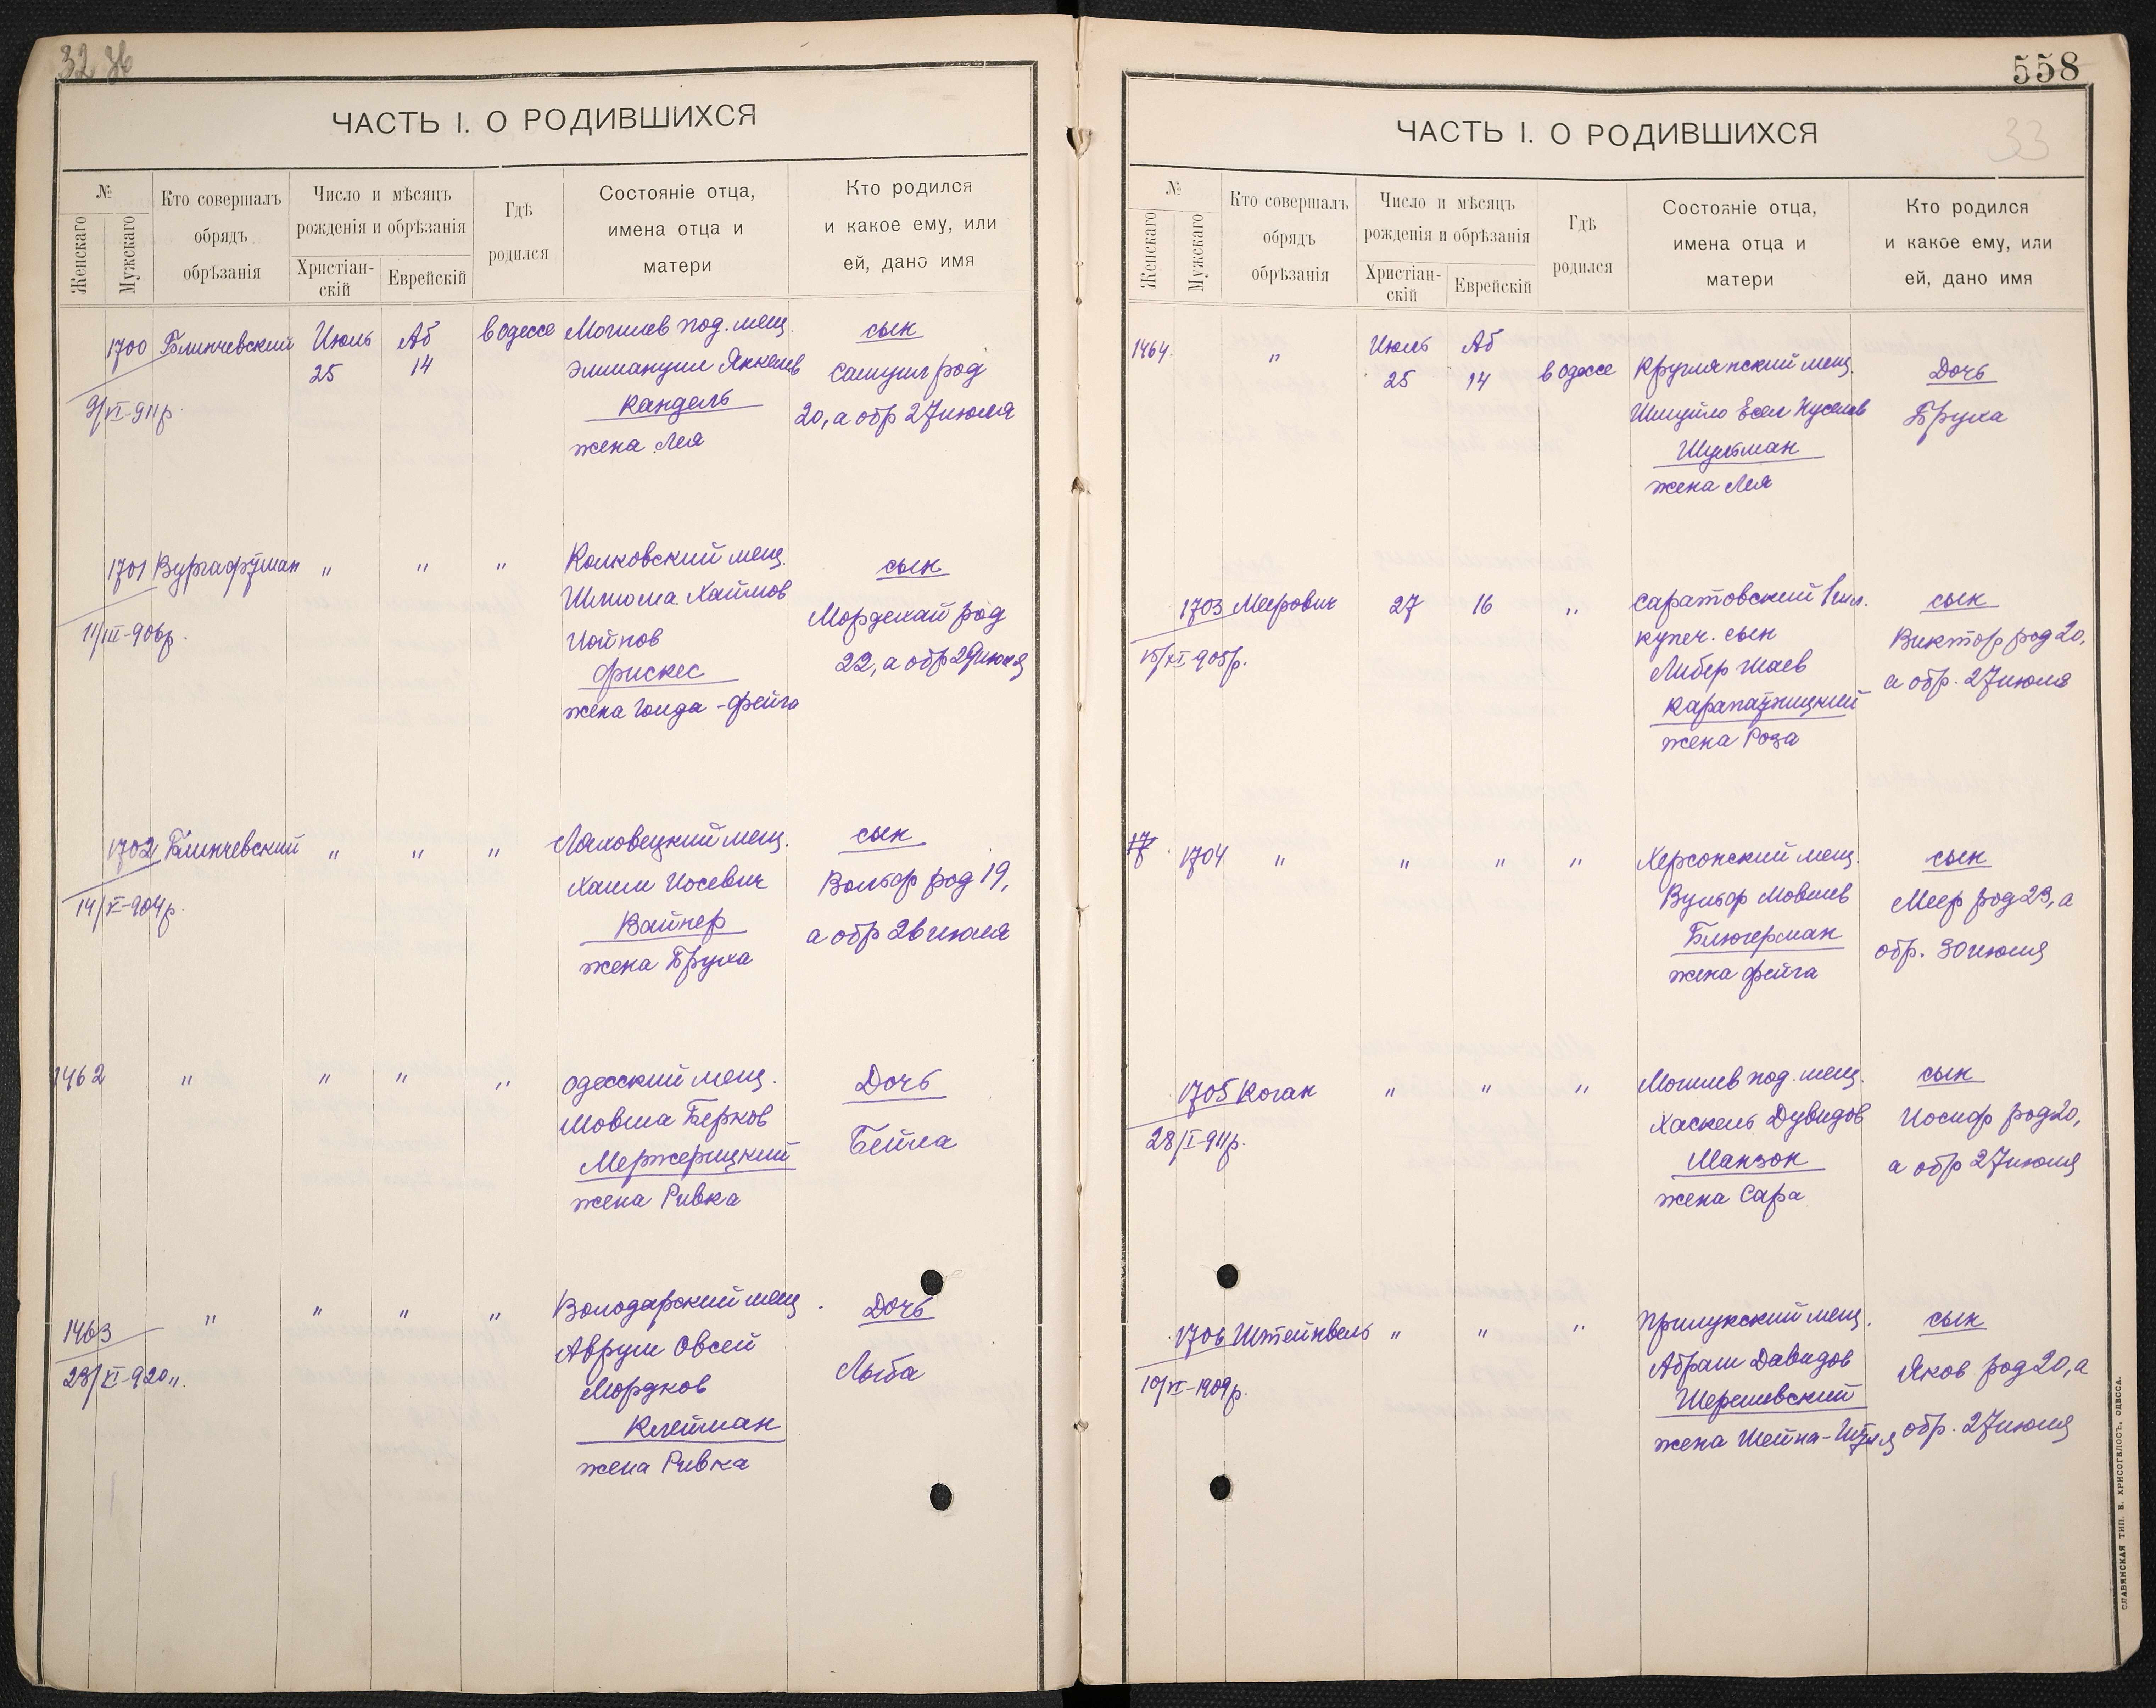 32 об
ЧАСТЬ I. О РОДИВШИХСЯ
№
Женскаго
Мужскаго
Кто совершалъ
обрядъ
обрѣзанія
Число и мѣсяцъ
рожденія и обрѣзанія
Христіан-
скій
Еврейскій
Гдѣ
родился
Состояніе отца,
имена отца и
матери
Кто родился
и какое ему, или
ей, дано имя
1700 Блинчевский Июль Аб в Одессе Могилев под. мещ. сын
25 14 Эммануил Янкелев Самуил род
9/VI-911р. Кандель 20, а обр 27 июля
жена Лея
1701 Вургафтман " " " Колковский мещ. сын
Шлиома Хаимов Мордехай род
11/III-906р. Иойнов 22, а обр 29 июля
Фискес
жена Гольда-Фейга
1702 Блинчевский " " " Ляховецкий мещ. сын
Хаим Иосевич Вольф род 19,
14/VI-904р. Вайнер а обр 26 июля
жена Бруха
1462 " " " " Одесский мещ. Дочь
Мовша Берков Бейла
Мержерицкий
жена Ривка
1463 " " " " Володарский мещ. Дочь
23/XI-920 ". Аврум Овсей Люба
Мордков
Клейман
жена Ривка
558
33
ЧАСТЬ I. О РОДИВШИХСЯ
№
Женскаго
Мужскаго
Кто совершалъ
обрядъ
обрѣзанія
Число и мѣсяцъ
рожденія и обрѣзанія
Христіан-
скій
Еврейскій
Гдѣ
родился
Состояніе отца,
имена отца и
матери
Кто родился
и какое ему, или
ей, дано имя
1464. " Июль Аб
25 14 в Одессе Круглянский мещ. Дочь
Шмуйло Есел Нуселев Бруха
Шульман
жена Лея
1703 Меерович 27 16 " Саратовский 1 гил. сын
купеч. сын Виктор род 20,
15/XI-905р. Либер Шаев а обр. 27 июля
Карапатницкий
жена Роза
17 1704 " " " " Херсонский мещ. сын
Вульф Мовшев Меер род 23, а
Блюгерман обр. 30 июля
жена Фейга
1705 Коган " " " Могилев под. мещ. сын
28/I-911р. Хаскель Дувидов Иосиф род 20,
Манзон а обр 27 июля
жена Сара
1706 Штейнвель " " " Прилукский мещ. сын
10/VI-1909р. Абрам Давидов Яков род 20, а
Шершевский
жена Шейна- обр. 27 июля
СЛАВЯНСКАЯ ТИП. Е. ХРИСОГЕЛОСЪ, ОДЕССА.